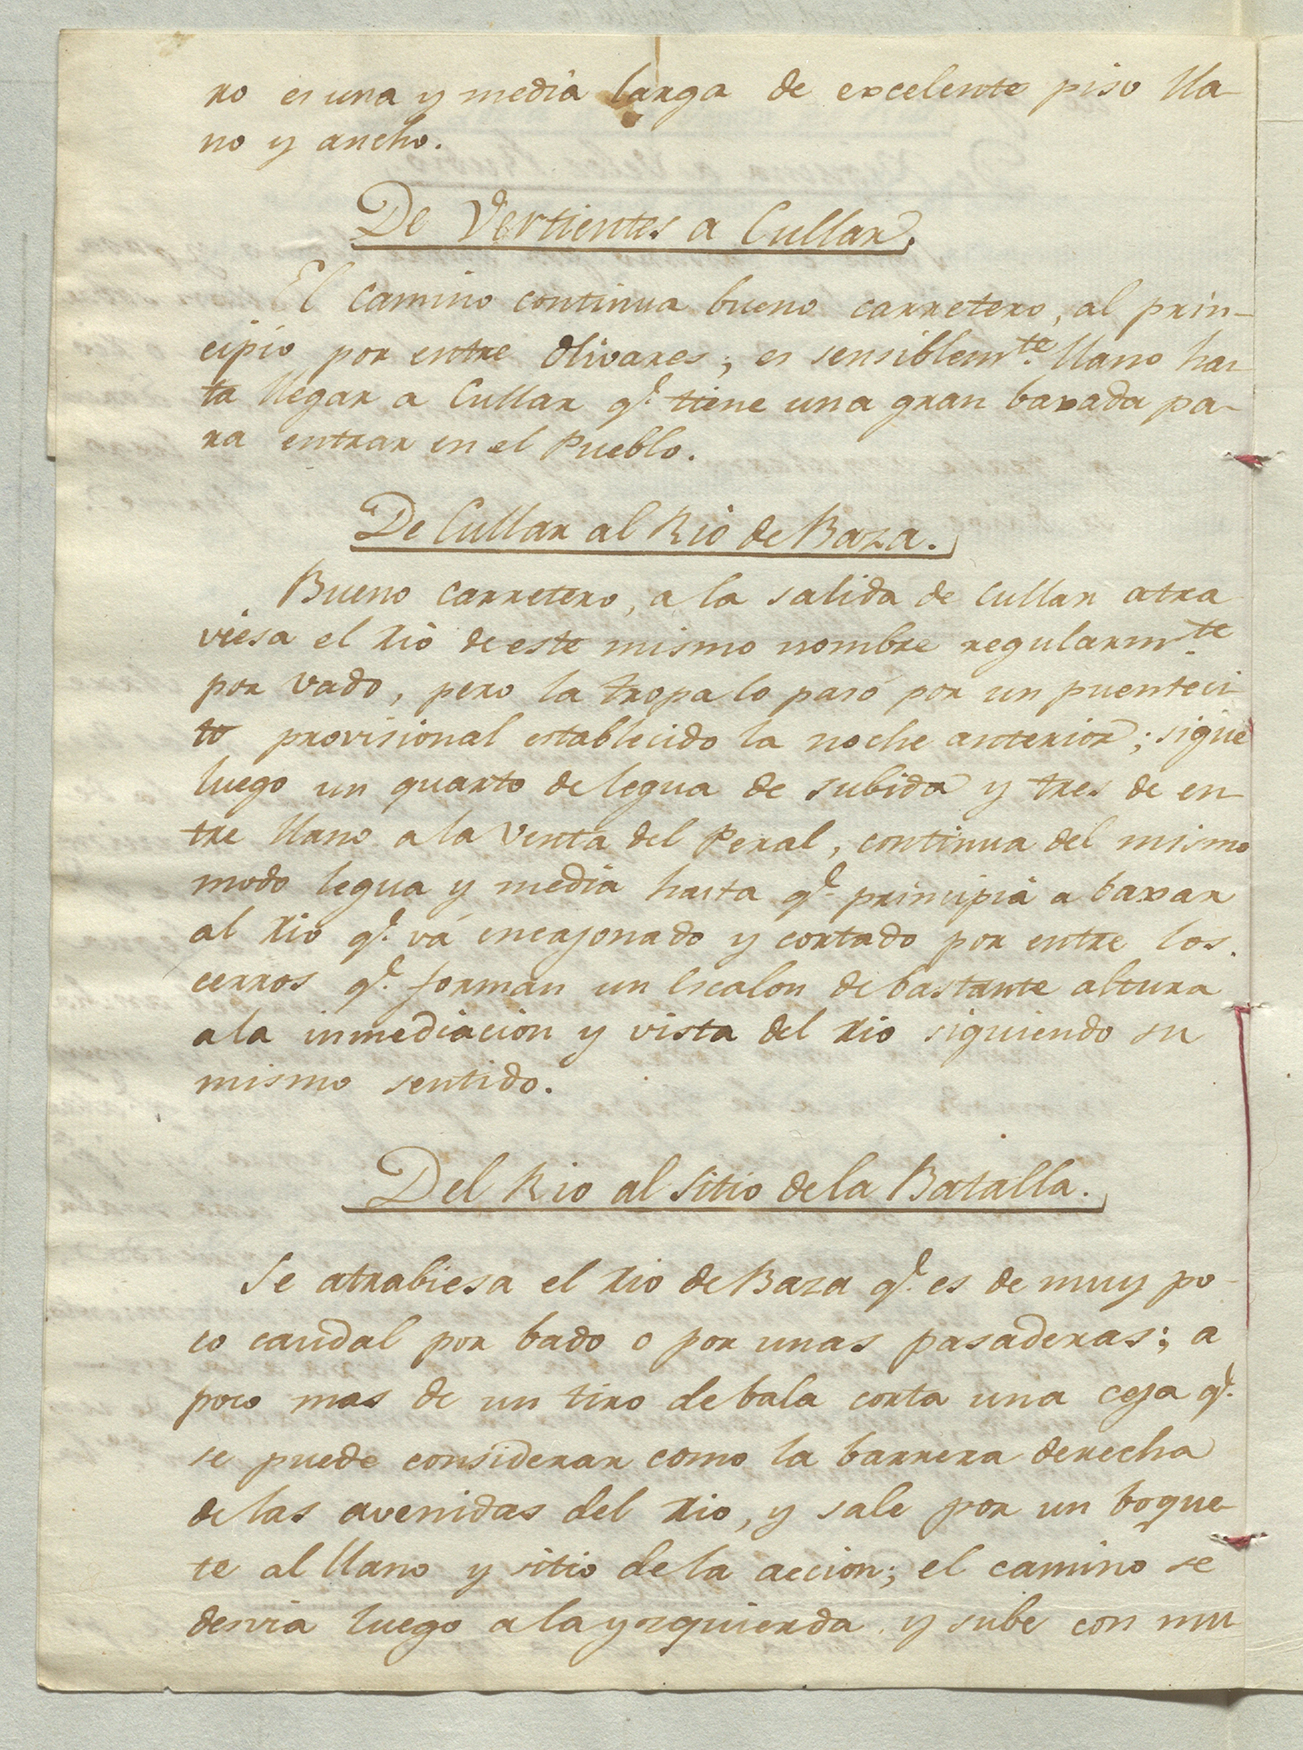 ro es una y media larga de excelente piso lla-
no y ancho.
De Vertientes a Cullar.
El camino continua bueno carretero, al prin-
cipio por entre Olivares; es sensiblem.te llano has-
ta llegar a Cullar q.e tiene una gran baxada pa-
ra entrar en el Pueblo.
De Cullar al Rio de Baza.
Bueno carretero, a la salida de Cullar atra
viesa el Rio de este mismo nombre regularm.te
por vado, pero la tropa lo pasó por un puenteci-
to provisional establecido la noche anterior; sigue
luego un quarto de legua de subida y tres de en-
tre llano a la Venta del Peral, continua del mismo
modo legua y media hasta q.e principia a baxar
al Rio q.e vá encajonado y cortado por entre los
cerros q.e forman un Escalon de bastante altura
a la inmediacion y vista del Rio siguiendo su
mismo sentido.
Del Rio al sitio de la Batalla.
Se atrabiesa el Rio de Baza q.e es de muy po-
co caudal por bado o por unas pasaderas; a
poco mas de un tiro de bala corta una ceja q.e
se puede considerar como la barrera derecha
de las avenidas del Rio, y sale por un boque-
te al llano y sitio de la accion; el camino se
desvia luego a la yzquierda y sube con mu